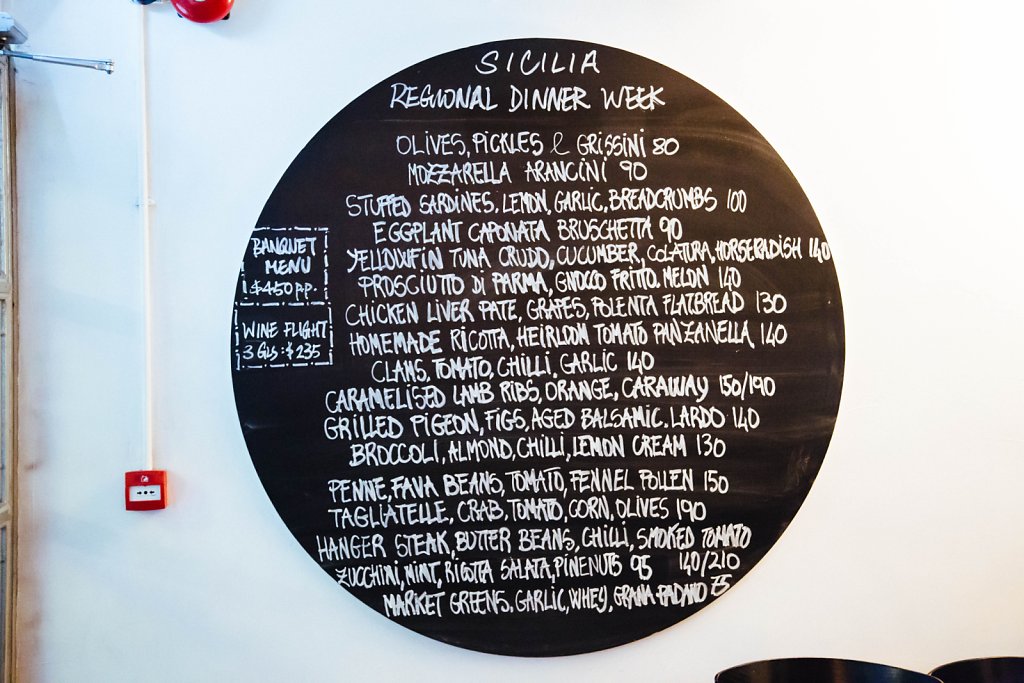 SICILIA
REGIONAL DINNER WEEK
OLIVES, PICKLES & GRISSINI 80
MOZZARELLA ARANCINI 90
STUFFED SARDINES, LEMON, GARLIC, BREADCRUMBS 100
EGGPLANT CAPONATA BRUSCHETTA 90
YELLOWFIN TUNA CRUDO, CUCUMBER, COLATURA, HORSERADISH 140
PROSCIUTTO DI PARMA, GNOCCO FRITTO, MELON 140
CHICKEN LIVER PATE, GRAPES, POLENTA FLATBREAD 130
HOMEMADE RICOTTA, HEIRLOOM TOMATO PANZANELLA 140
CLAMS, TOMATO, CHILLI, GARLIC 140
CARAMELISED LAMB RIBS, ORANGE, CARAWAY 150/190
GRILLED PIGEON, FIGS, AGED BALSAMIC, LARDO 140
BROCCOLI, ALMOND, CHILLI, LEMON CREAM 130
PENNE, FAVA BEANS, TOMATO, FENNEL POLLEN 150
TAGLIATELLE, CRAB, TOMATO, CORN, OLIVES 190
HANGER STEAK, BUTTER BEANS, CHILLI, SMOKED TOMATO
140/210
ZUCCHINI, MINT, RICOTTA SALATA, PINENUTS 95
MARKET GREENS, GARLIC, WHEY, GRANA PADANO 75
BANQUET
MENU
$450 PP.
WINE FLIGHT
3 GLS : $235